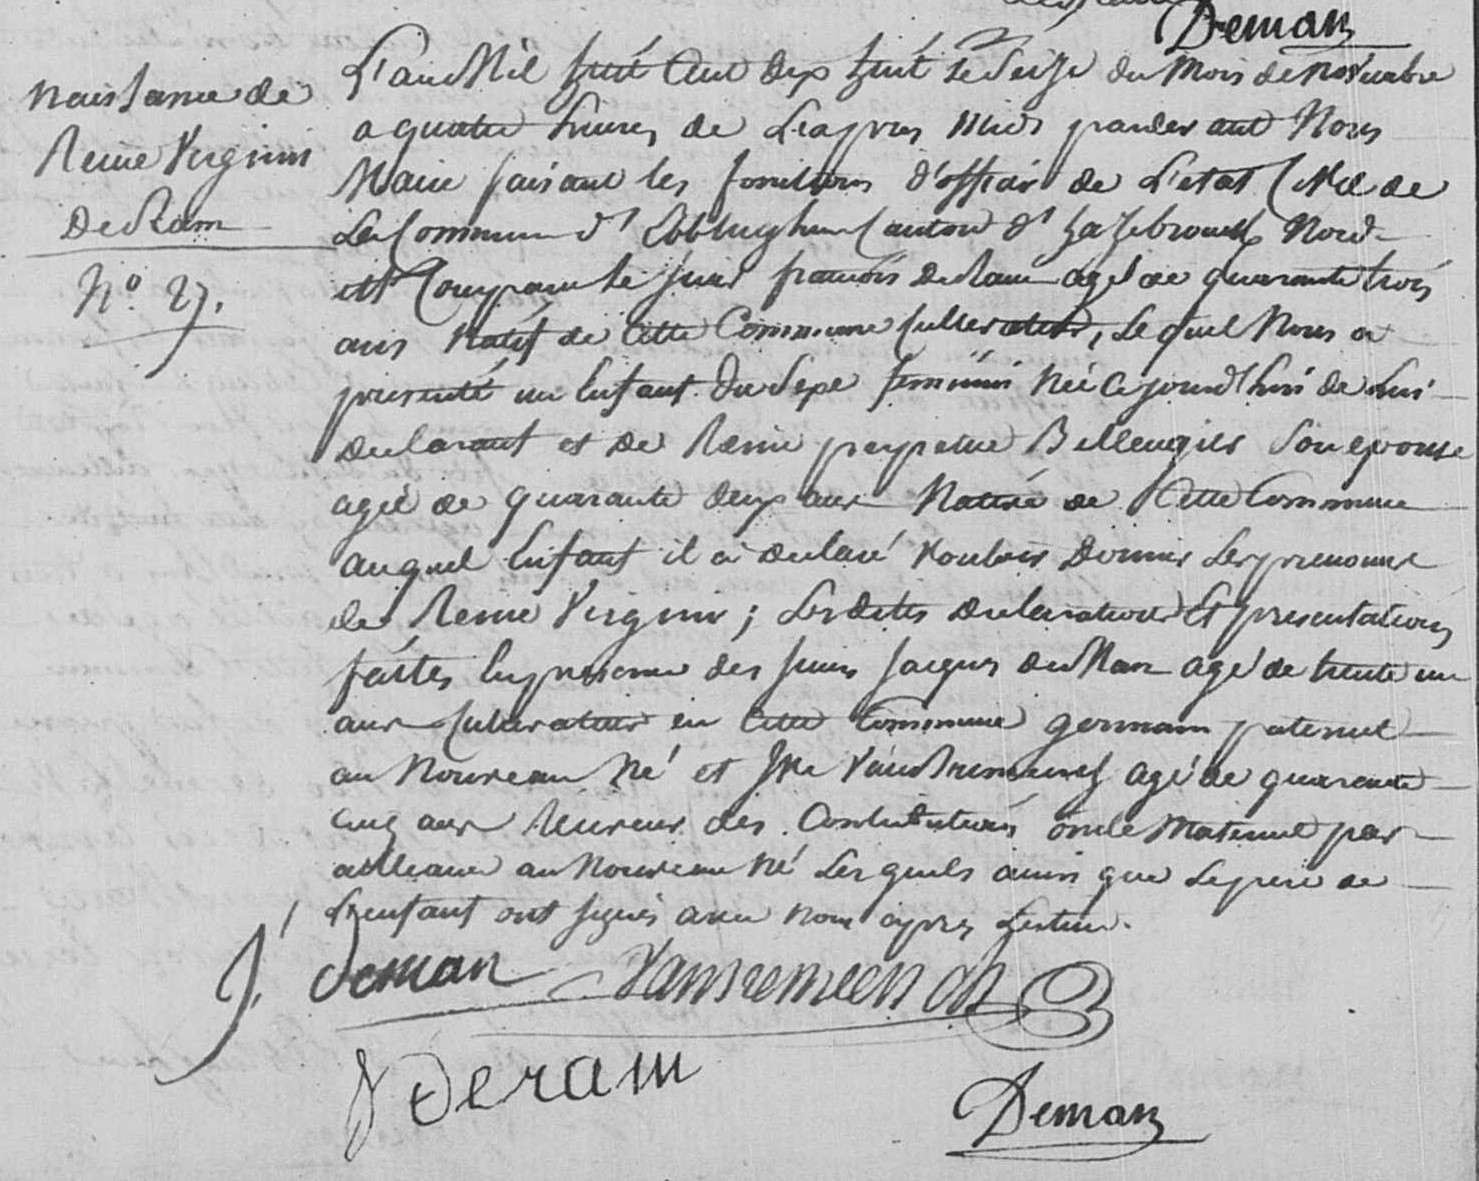 Deman
Naissance de
Reine Virginie
DeRam
N° 27.
L'an Mil huit Cent dix huit le Seize du Mois de Novembre
a quatre heures de L'apres midi pardevant Nous
Maire faisant les fonctions d'officier de L'etat Civil de
La Commune d' Ebblinghem Canton d' hazebrouck Nord
est Comparu le sieur francois DeRam agé de quarante trois
ans Natif de Cette Commune Cultivateur, Lequel Nous a
presenté un Enfant du Sexe feminin Né Cejourd'hui de Lui
declarant et de Reine perpetue Bellenguier Son epouse
agée de quarante deux ans Native de Cette Commune
auquel Enfant il a declaré vouloir donner Les prenoms
de Reine Virginie ; Lesdittes declaration Et presentation
faites En presence des sieurs Jacques deMan agé de trente un
ans Cultivateur en Cette Commune germain paternel
au Nouveau Né et agé de quarante
cinq ans Receveur des Contributions oncle Maternel par
alliance au Nouveau Né Les quels ainsi que Le pere de
L'enfant ont signés avec nous apres Lecture.
J. deman
f Deram
Deman